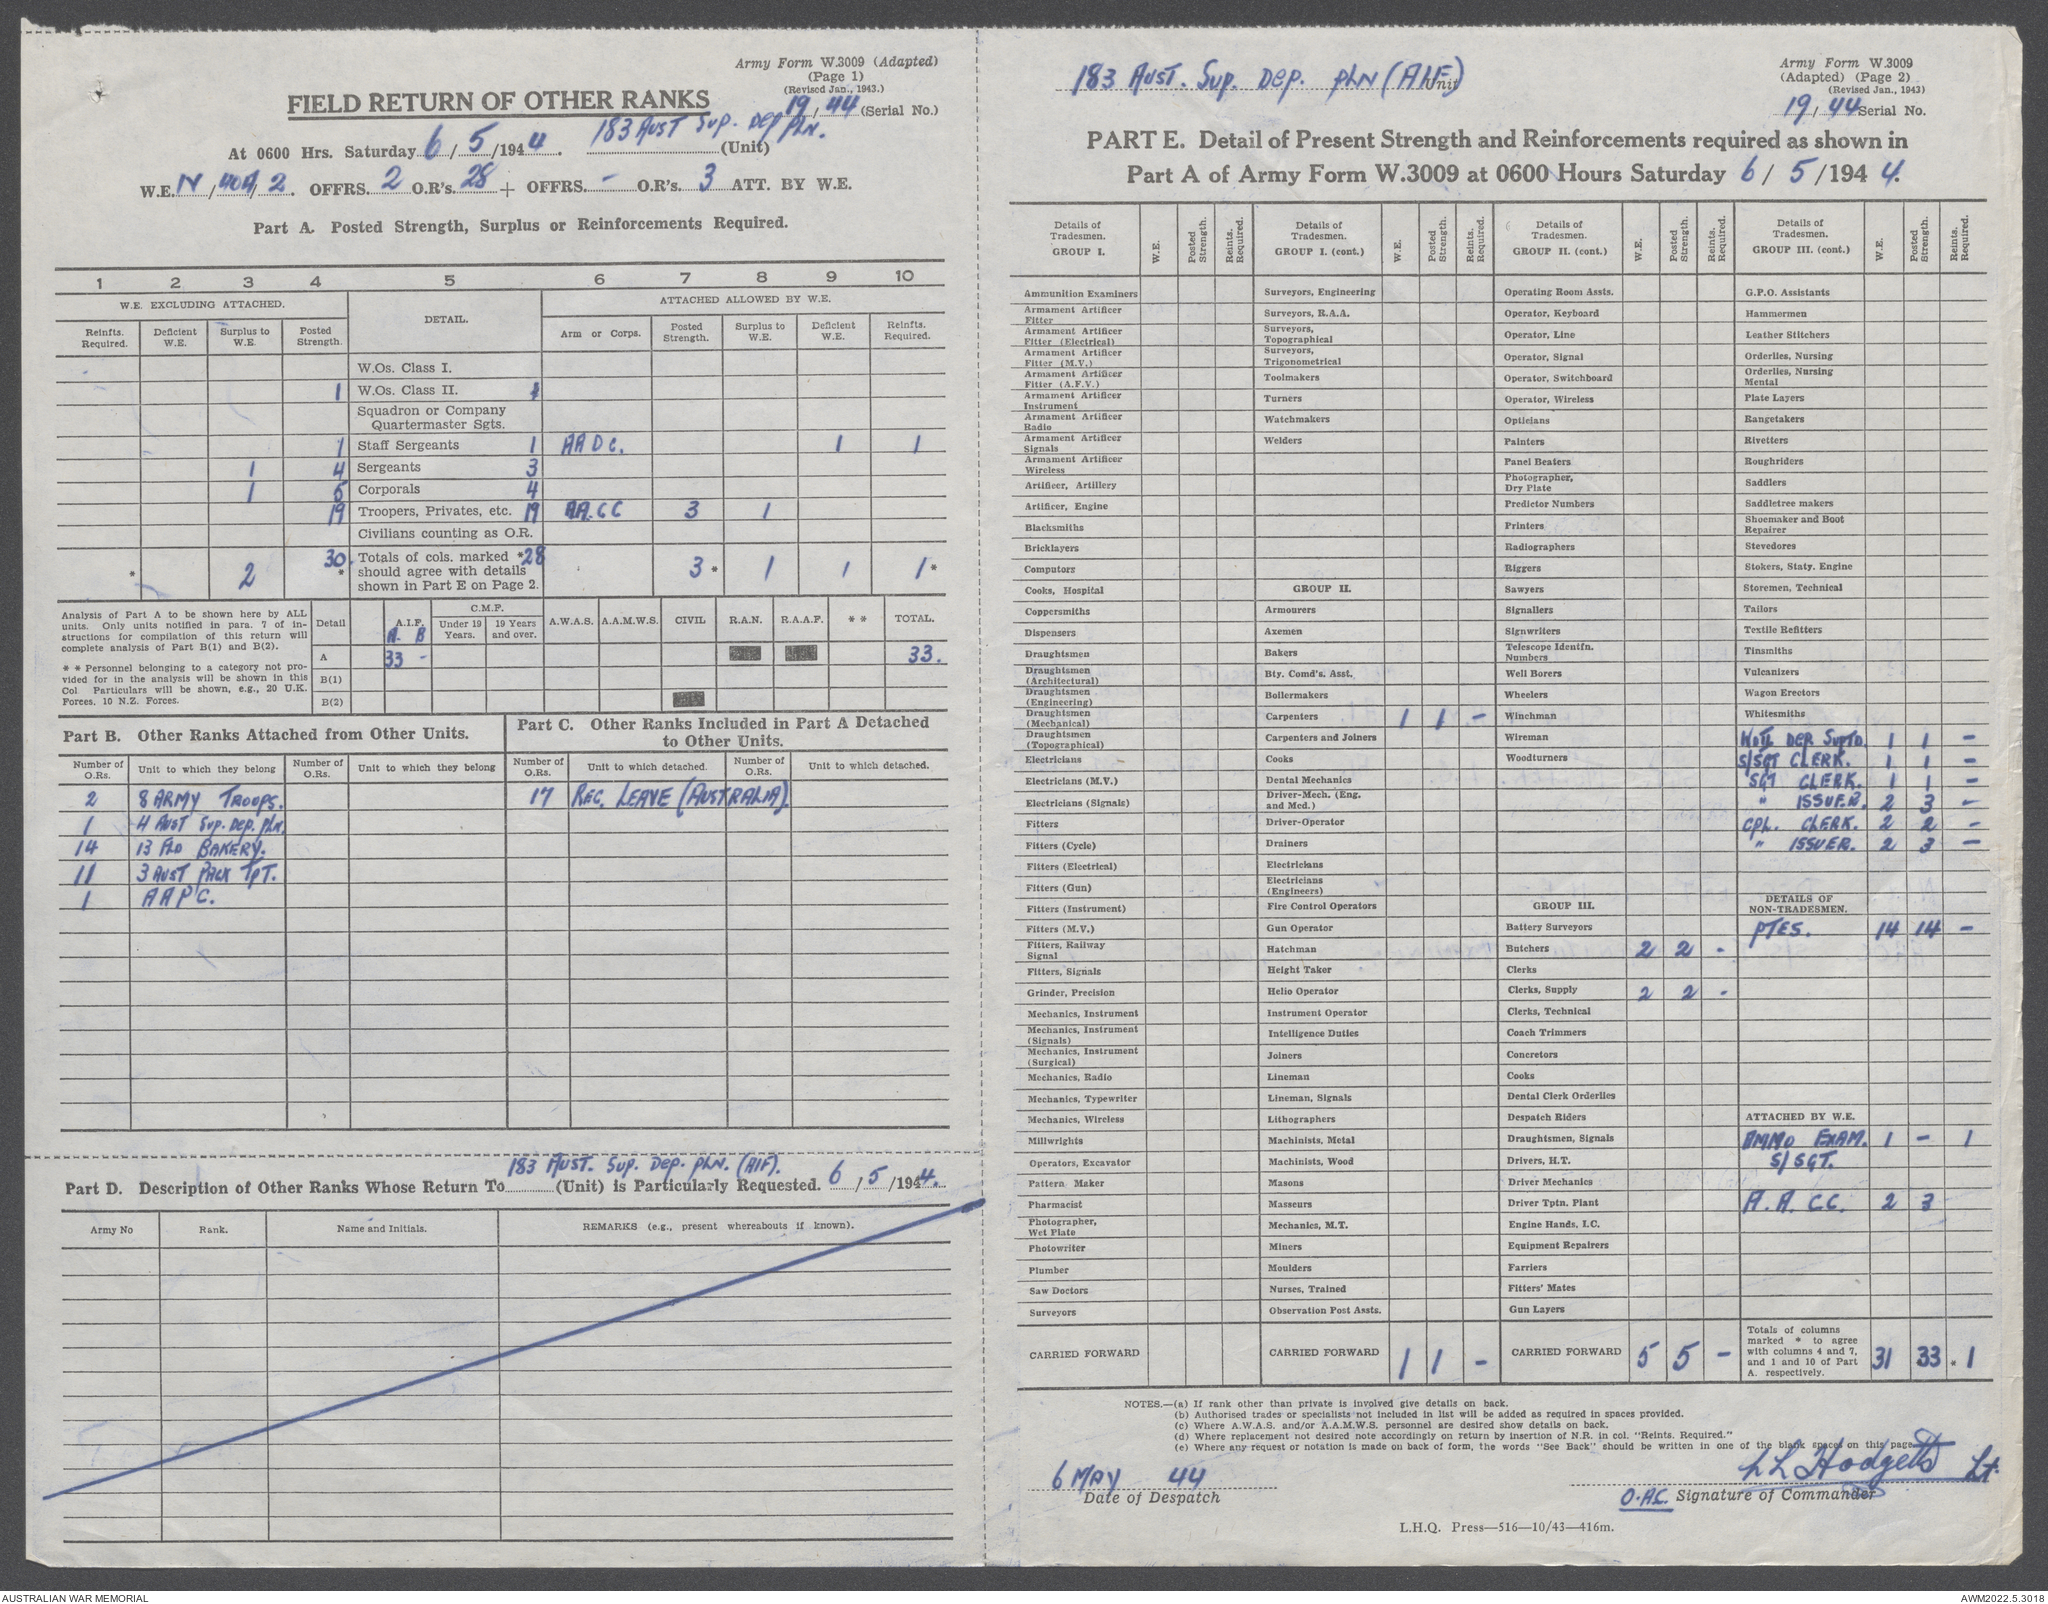 Army Form W.3009 (Adapted)
(Page 1)
(Revised Jan., 1943.)
FIELD RETURN OF OTHER RANKS
19/44 (Serial No.)
At 0600 Hrs. Saturday 6/5/1944. 183 AUST SUP. DEP PLN. (Unit)
W.E. IV/404/2. OFFRS. 2 O.R's. 28 + OFFRS. - O.R's. 3 ATT. BY W.E.
Part A. Posted Strength, Surplus or Reinforcements Required.
1 2 3 4 5 6 7 8 9 10
W.E. EXCLUDING ATTACHED. DETAIL. ATTACHED ALLOWED BY W.E.
Reinfts. Required. Deficient W.E. Surplus to W.E. Posted Strength. Arm or Corps. Posted Strength. Surplus to W.E. Deficient W.E. Reinfts. Required.
W.Os. Class I.
1 W.Os. Class II. 1
Squadron or Company
Quartermaster Sgts.
1 Staff Sergeants 1 AAOC. 1 1
1 4 Sergeants 3
1 5 Corporals 4
19 Troopers, Privates, etc. 19 AA.CC 3 1
Civilians counting as O.R.
* 2 30 * Totals of cols. marked * 28 3 * 1 1 1 *
should agree with details
shown in Part E on Page 2.
Analysis of Part A to be shown here by ALL
units. Only units notified in para. 7 of in-
structions for compilation of this return will
complete analysis of Part B(1) and B(2).
* * Personnel belonging to a category not pro-
vided for in the analysis will be shown in this
Col. Particulars will be shown, e.g., 20 U.K.
Forces, 10 N.Z. Forces.
Detail A.I.F. A. B C.M.F. Under 19 Years. 19 Years and over. A.W.A.S. A.A.M.W.S. CIVIL R.A.N. R.A.A.F. * * TOTAL.
A 33 - 33.
B(1)
B(2)
Part B. Other Ranks Attached from Other Units.
Part C. Other Ranks Included in Part A Detached
to Other Units.
Number of O.Rs. Unit to which they belong Number of O.Rs. Unit to which they belong Number of O.Rs. Unit to which detached. Number of O.Rs. Unit to which detached.
2 8 ARMY TROOPS. 17 REC. LEAVE (AUSTRALIA)
1 4 AUST SUP. DEP. PLN.
14 13 FLD BAKERY.
11 3 AUST PACK TPT.
1 AAPC.
183 AUST. SUP. DEP. PLN. (AIF).
Part D. Description of Other Ranks Whose Return To (Unit) is Particularly Requested. 6/5/1944.
Army No Rank. Name and Initials. REMARKS (e.g., present whereabouts if known).
183 AUST. SUP. DEP. PLN (AIF) Unit
Army Form W.3009
(Adapted) (Page 2)
(Revised Jan., 1943)
19/44 Serial No.
PART E. Detail of Present Strength and Reinforcements required as shown in
Part A of Army Form W.3009 at 0600 Hours Saturday 6/5/1944.
Details of Tradesmen. GROUP I. W.E. Posted Strength. Reints. Required.
Ammunition Examiners
Armament Artificer Fitter
Armament Artificer Fitter (Electrical)
Armament Artificer Fitter (M.V.)
Armament Artificer Fitter (A.F.V.)
Armament Artificer Instrument
Armament Artificer Radio
Armament Artificer Signals
Armament Artificer Wireless
Artificer, Artillery
Artificer, Engine
Blacksmiths
Bricklayers
Computors
Cooks, Hospital
Coppersmiths
Dispensers
Draughtsmen
Draughtsmen (Architectural)
Draughtsmen (Engineering)
Draughtsmen (Mechanical)
Draughtsmen (Topographical)
Electricians
Electricians (M.V.)
Electricians (Signals)
Fitters
Fitters (Cycle)
Fitters (Electrical)
Fitters (Gun)
Fitters (Instrument)
Fitters (M.V.)
Fitters, Railway Signal
Fitters, Signals
Grinder, Precision
Mechanics, Instrument
Mechanics, Instrument (Signals)
Mechanics, Instrument (Surgical)
Mechanics, Radio
Mechanics, Typewriter
Mechanics, Wireless
Millwrights
Operators, Excavator
Pattern Maker
Pharmacist
Photographer, Wet Plate
Photowriter
Plumber
Saw Doctors
Surveyors
CARRIED FORWARD
Details of Tradesmen. GROUP I. (cont.) W.E. Posted Strength. Reints. Required.
Surveyors, Engineering
Surveyors, R.A.A.
Surveyors, Topographical
Surveyors, Trigonometrical
Toolmakers
Turners
Watchmakers
Welders
GROUP II.
Armourers
Axemen
Bakers
Bty. Comd's. Asst.
Boilermakers
Carpenters 1 1 -
Carpenters and Joiners
Cooks
Dental Mechanics
Driver-Mech. (Eng. and Med.)
Driver-Operator
Drainers
Electricians
Electricians (Engineers)
Fire Control Operators
Gun Operator
Hatchman
Height Taker
Helio Operator
Instrument Operator
Intelligence Duties
Joiners
Lineman
Lineman, Signals
Lithographers
Machinists, Metal
Machinists, Wood
Masons
Masseurs
Mechanics, M.T.
Miners
Moulders
Nurses, Trained
Observation Post Assts.
CARRIED FORWARD 1 1 -
Details of Tradesmen. GROUP II. (cont.) W.E. Posted Strength. Reints. Required.
Operating Room Assts.
Operator, Keyboard
Operator, Line
Operator, Signal
Operator, Switchboard
Operator, Wireless
Opticians
Painters
Panel Beaters
Photographer, Dry Plate
Predictor Numbers
Printers
Radiographers
Riggers
Sawyers
Signallers
Signwriters
Telescope Identfn. Numbers
Well Borers
Wheelers
Winchman
Wireman
Woodturners
GROUP III.
Battery Surveyors
Butchers 2 2 -
Clerks
Clerks, Supply 2 2 -
Clerks, Technical
Coach Trimmers
Concretors
Cooks
Dental Clerk Orderlies
Despatch Riders
Draughtsmen, Signals
Drivers, H.T.
Driver Mechanics
Driver Tptn. Plant
Engine Hands, I.C.
Equipment Repairers
Farriers
Fitters' Mates
Gun Layers
CARRIED FORWARD 5 5 -
Details of Tradesmen. GROUP III. (cont.) W.E. Posted Strength. Reints. Required.
G.P.O. Assistants
Hammermen
Leather Stitchers
Orderlies, Nursing
Orderlies, Nursing Mental
Plate Layers
Rangetakers
Rivetters
Roughriders
Saddlers
Saddletree makers
Shoemaker and Boot Repairer
Stevedores
Stokers, Staty. Engine
Storemen, Technical
Tailors
Textile Refitters
Tinsmiths
Vulcanizers
Wagon Erectors
Whitesmiths
WOII DEP SUPTD. 1 1 -
S/SGT CLERK. 1 1 -
SGT CLERK. 1 1 -
" ISSUER. 2 3 -
CPL. CLERK. 2 2 -
" ISSUER. 2 3 -
DETAILS OF NON-TRADESMEN.
PTES. 14 14 -
ATTACHED BY W.E.
AMMO EXAM. 1 - 1
S/SGT.
A.A.C.C. 2 3
Totals of columns marked * to agree with columns 4 and 7, and 1 and 10 of Part A. respectively. 31 33 * 1
NOTES.—(a) If rank other than private is involved give details on back.
(b) Authorised trades or specialists not included in list will be added as required in spaces provided.
(c) Where A.W.A.S. and/or A.A.M.W.S. personnel are desired show details on back.
(d) Where replacement not desired note accordingly on return by insertion of N.R. in col. "Reints. Required."
(e) Where any request or notation is made on back of form, the words "See Back" should be written in one of the blank spaces on this page.
6 MAY 44
Date of Despatch
L L Hodgetts Lt.
O.A.C. Signature of Commander
L.H.Q. Press—516—10/43—416m.
AUSTRALIAN WAR MEMORIAL
AWM2022.5.3018